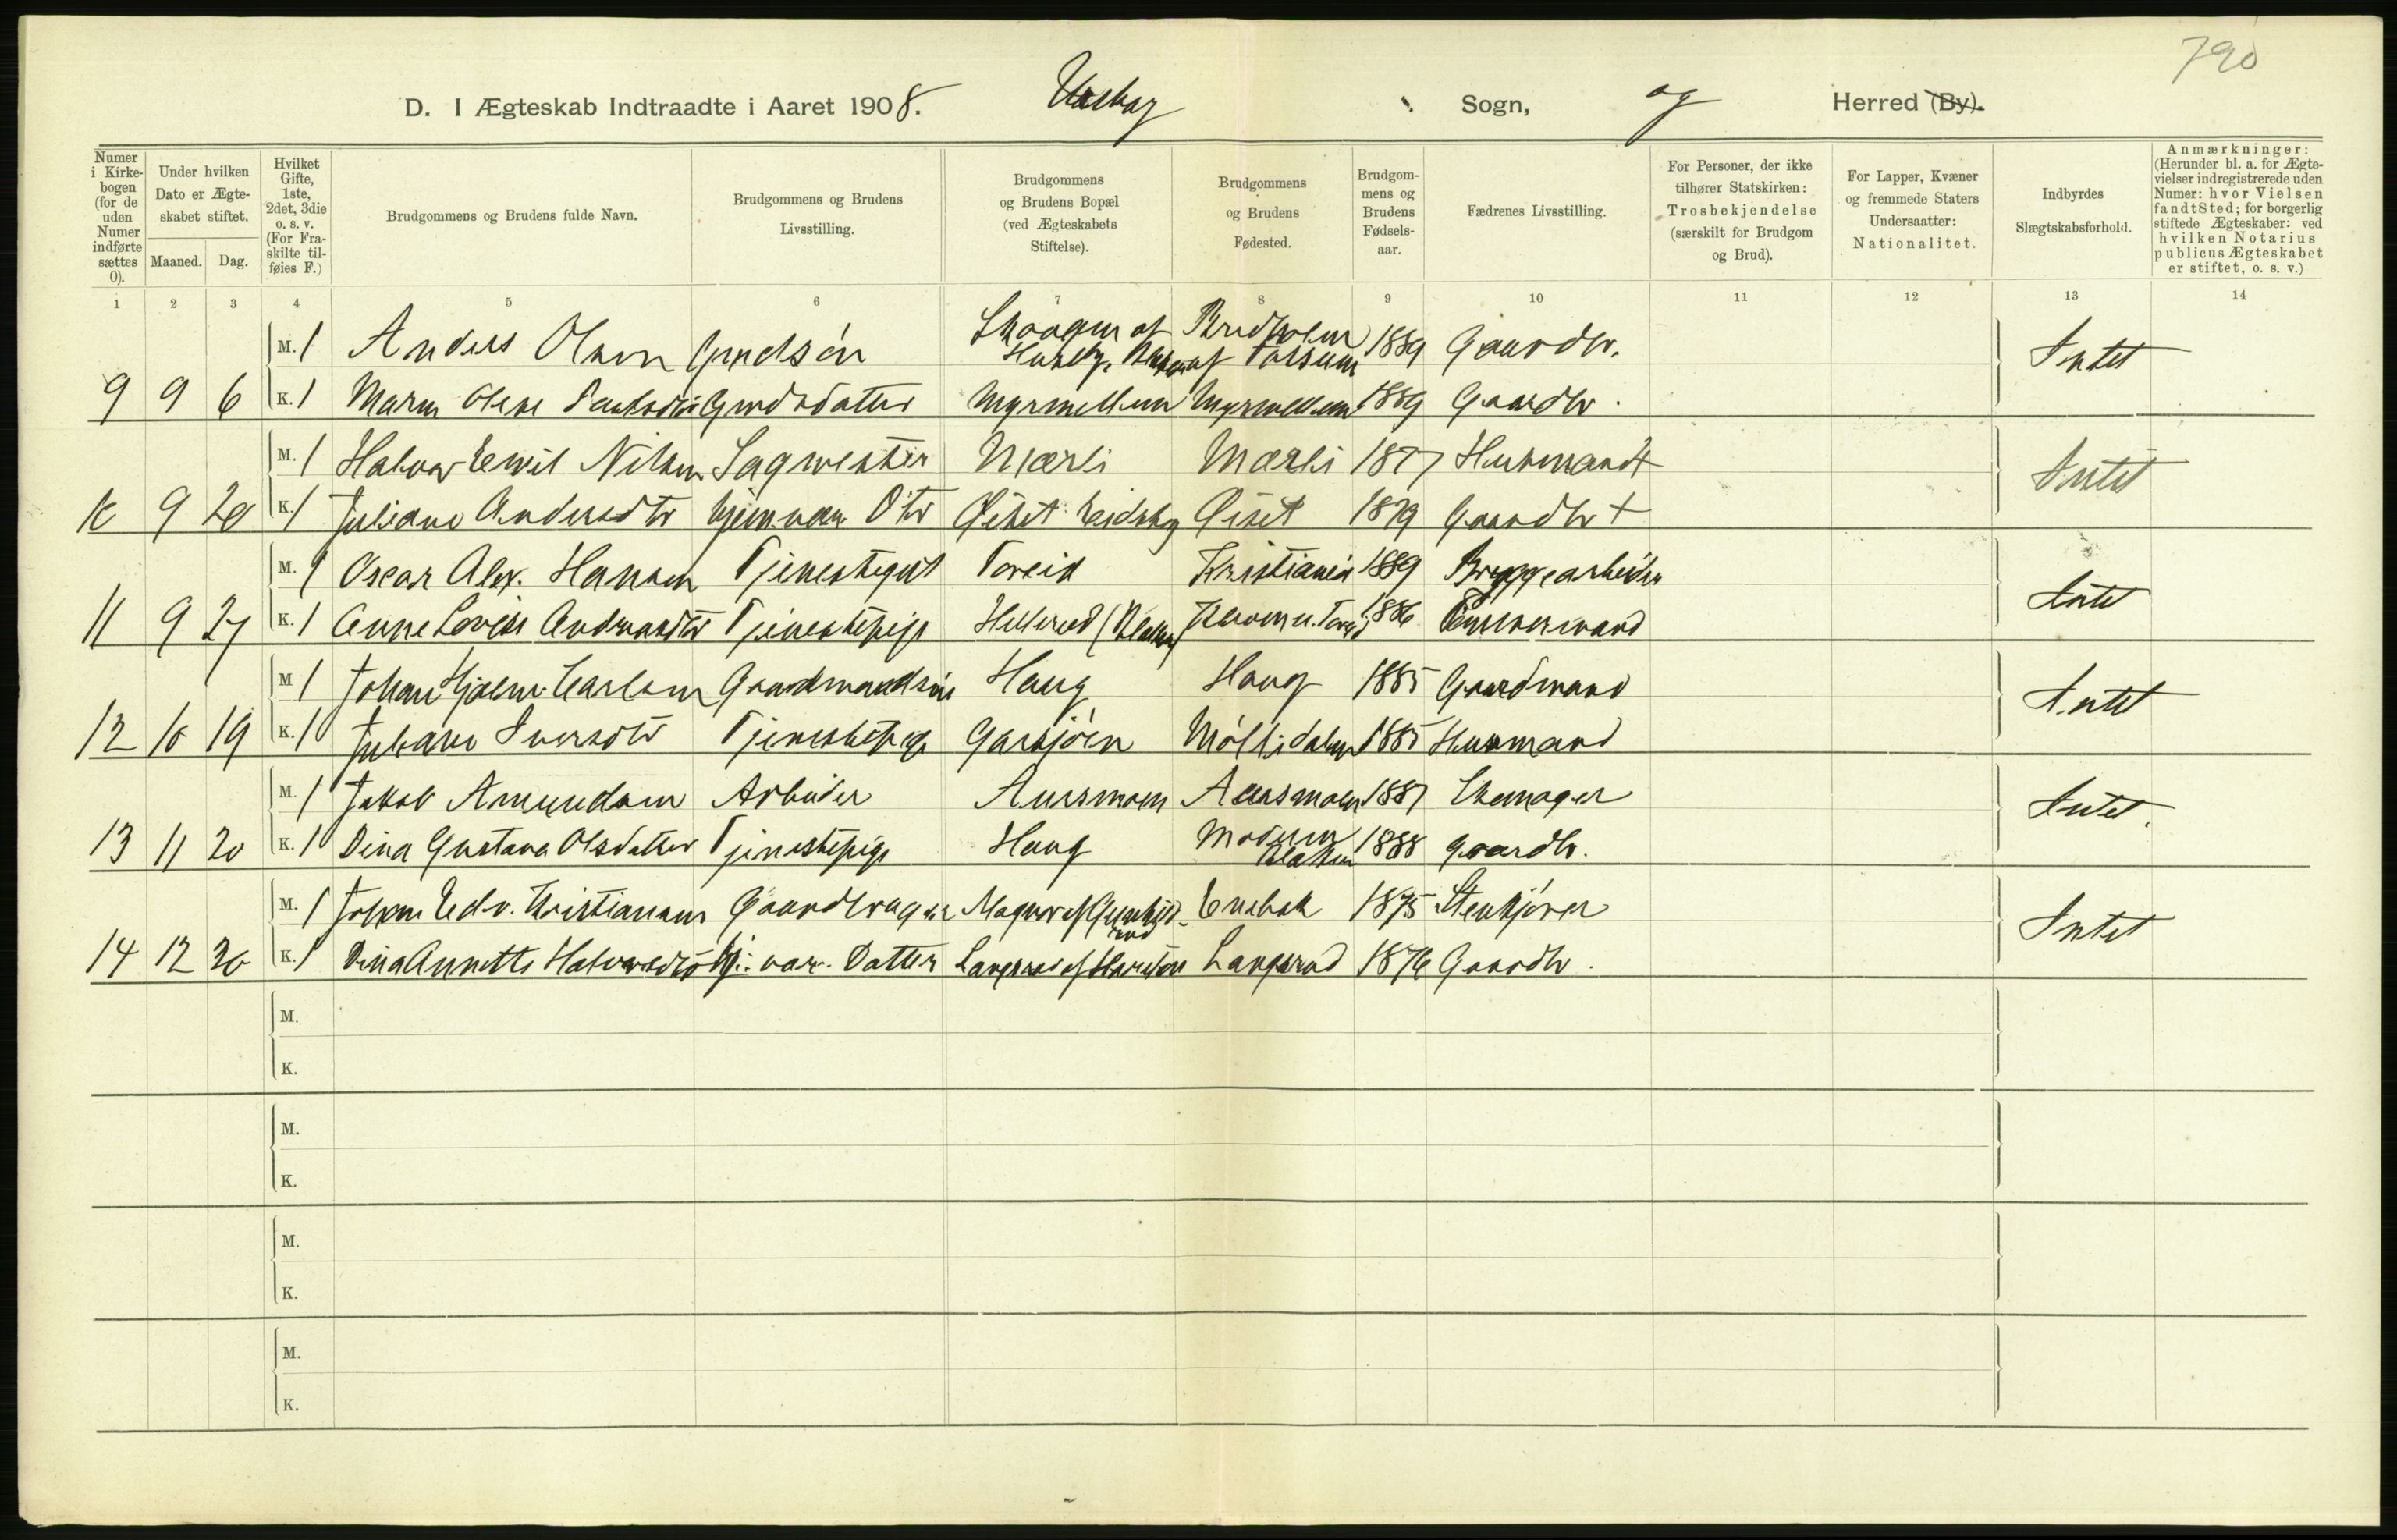 790
D. I Ægteskab Indtraadte i Aaret 1908. Urskog Sogn, og Herred (By).
Numer i Kirkebogen (for de uden Numer indførte sættes 0).
Under hvilken Dato er Ægteskabet stiftet.
Maaned. Dag.
Hvilket Gifte, 1ste, 2det, 3die o. s. v. (For Fraskilte tilføies F.)
Brudgommens og Brudens fulde Navn.
Brudgommens og Brudens Livsstilling.
Brudgommens og Brudens Bopæl (ved Ægteskabets Stiftelse).
Brudgommens og Brudens Fødested.
Brudgommens og Brudens Fødselsaar.
Fædrenes Livsstilling.
For Personer, der ikke tilhører Statskirken: Trosbekjendelse (særskilt for Brudgom og Brud).
For Lapper, Kvæner og fremmede Staters Undersaatter: Nationalitet.
Indbyrdes Slægtskabsforhold.
Anmærkninger: (Herunder bl. a. for Ægtevielser indregistrerede uden Numer: hvor Vielsen fandt Sted; for borgerlig stiftede Ægteskaber: ved hvilken Notarius publicus Ægteskabet er stiftet, o. s. v.)
1 2 3 4 5 6 7 8 9 10 11 12 13 14
M. 1 Anders Olsen Grndsön 1889 Gaardbr. Intet
9 9 6 K. 1 Maren Olene Grdsdatter Myrmellem Myrmellem 1889 Gaardbr.
M. 1 Halvor Emil Nilsen Mærli Mærli 1877 Husmand + Intet
10 9 20 K. 1 Juliane Andersdtr Hjemvær. Dtr Eidskog 1879 Gaardbr +
M. 1 Oscar Alex. Hansen Tjenestegut Toreid Kristiania 1889 Bryggearbeider Intet
11 9 27 K. 1 Anne Lovise Tjenestepige Hellerud 1886 Tømmermand
M 1 Johan Hjalm. Carlsen Gaardmandsön Haug Haug 1885 Gaardmand Intet
12 10 19 K. 1 Juliane Iversdtr Tjenestepige Garsjöen 1885 Husmand
M. 1 Jakob Amundsen Arbeider Aursmoen Aursmoen 1887 Skomager Intet.
13 11 20 K. 1 Dina Gustava Olsdatter Tjenestepige Haug 1888 Gaardbr.
M. 1 Johan Edv. Kristiansen Gaardbruger Enebak 1875 Stenkjörer Intet
14 12 30 K. 1 Dina Annette Halvorsdtr Hj. vær. Datter Langsrud 1876 Gaardbr.
M.
K.
M.
K.
M.
K.
M.
K.